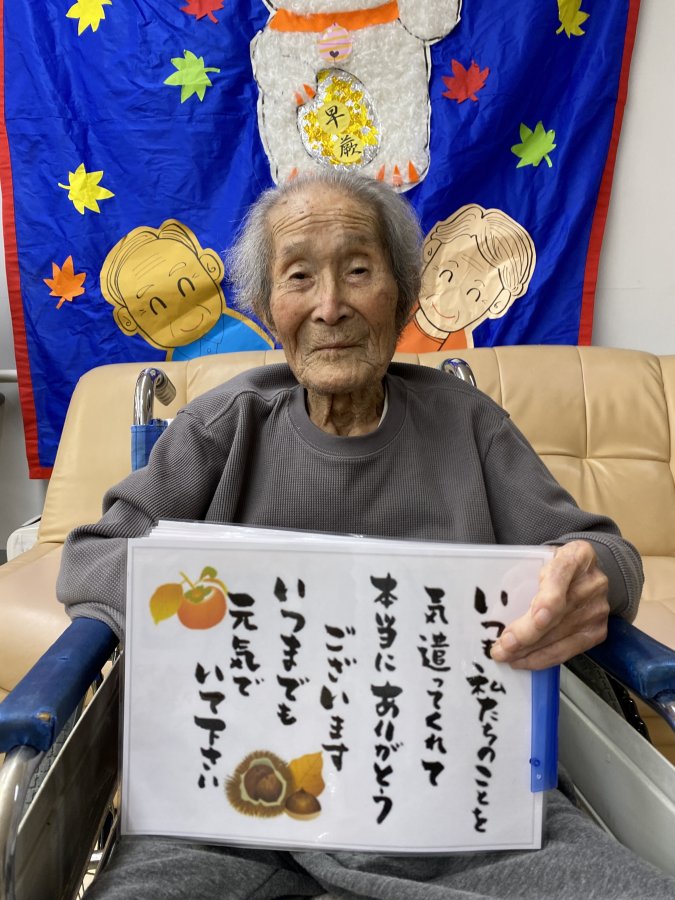 早
蕨
いつも私たちのことを
気遣ってくれて
本当にありがとう
ございます
いつまでも
元気で
いて下さい